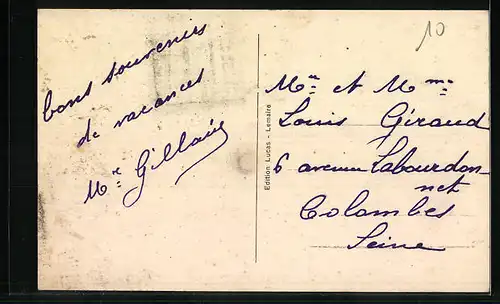 10
bons souvenirs
de vacances
Mr. Gillain
Edition Lucas - Lemaire
Mr et Mme
Louis Géraud
6 avenue Labourdon-
net
Colombes
Seine